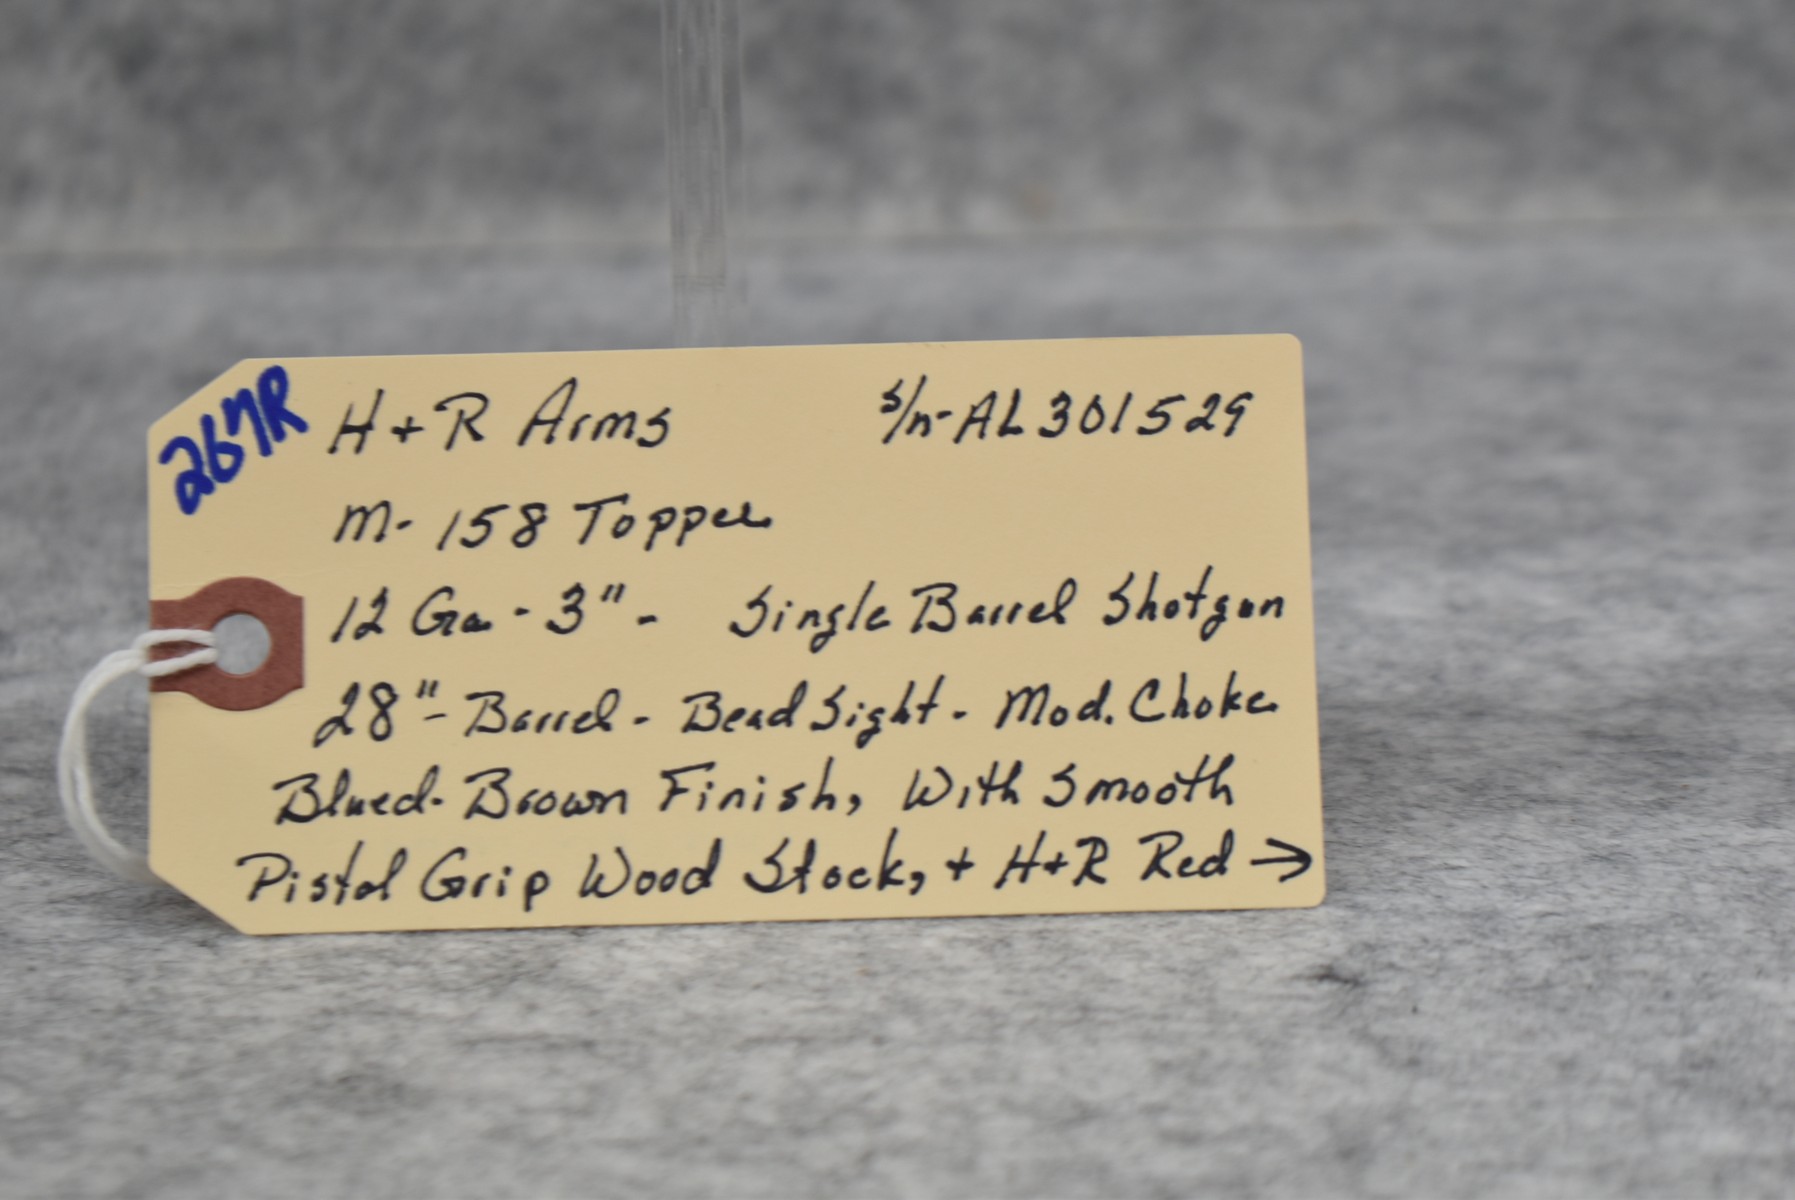 267R
H + R Arms s/n- AL301529
M- 158 Topper
12 Ga - 3" - Single Barrel Shotgun
28" - Barrel - Bead Sight - Mod. Choke
Blued- Brown Finish, With Smooth
Pistol Grip Wood Stock, + H+R Red →